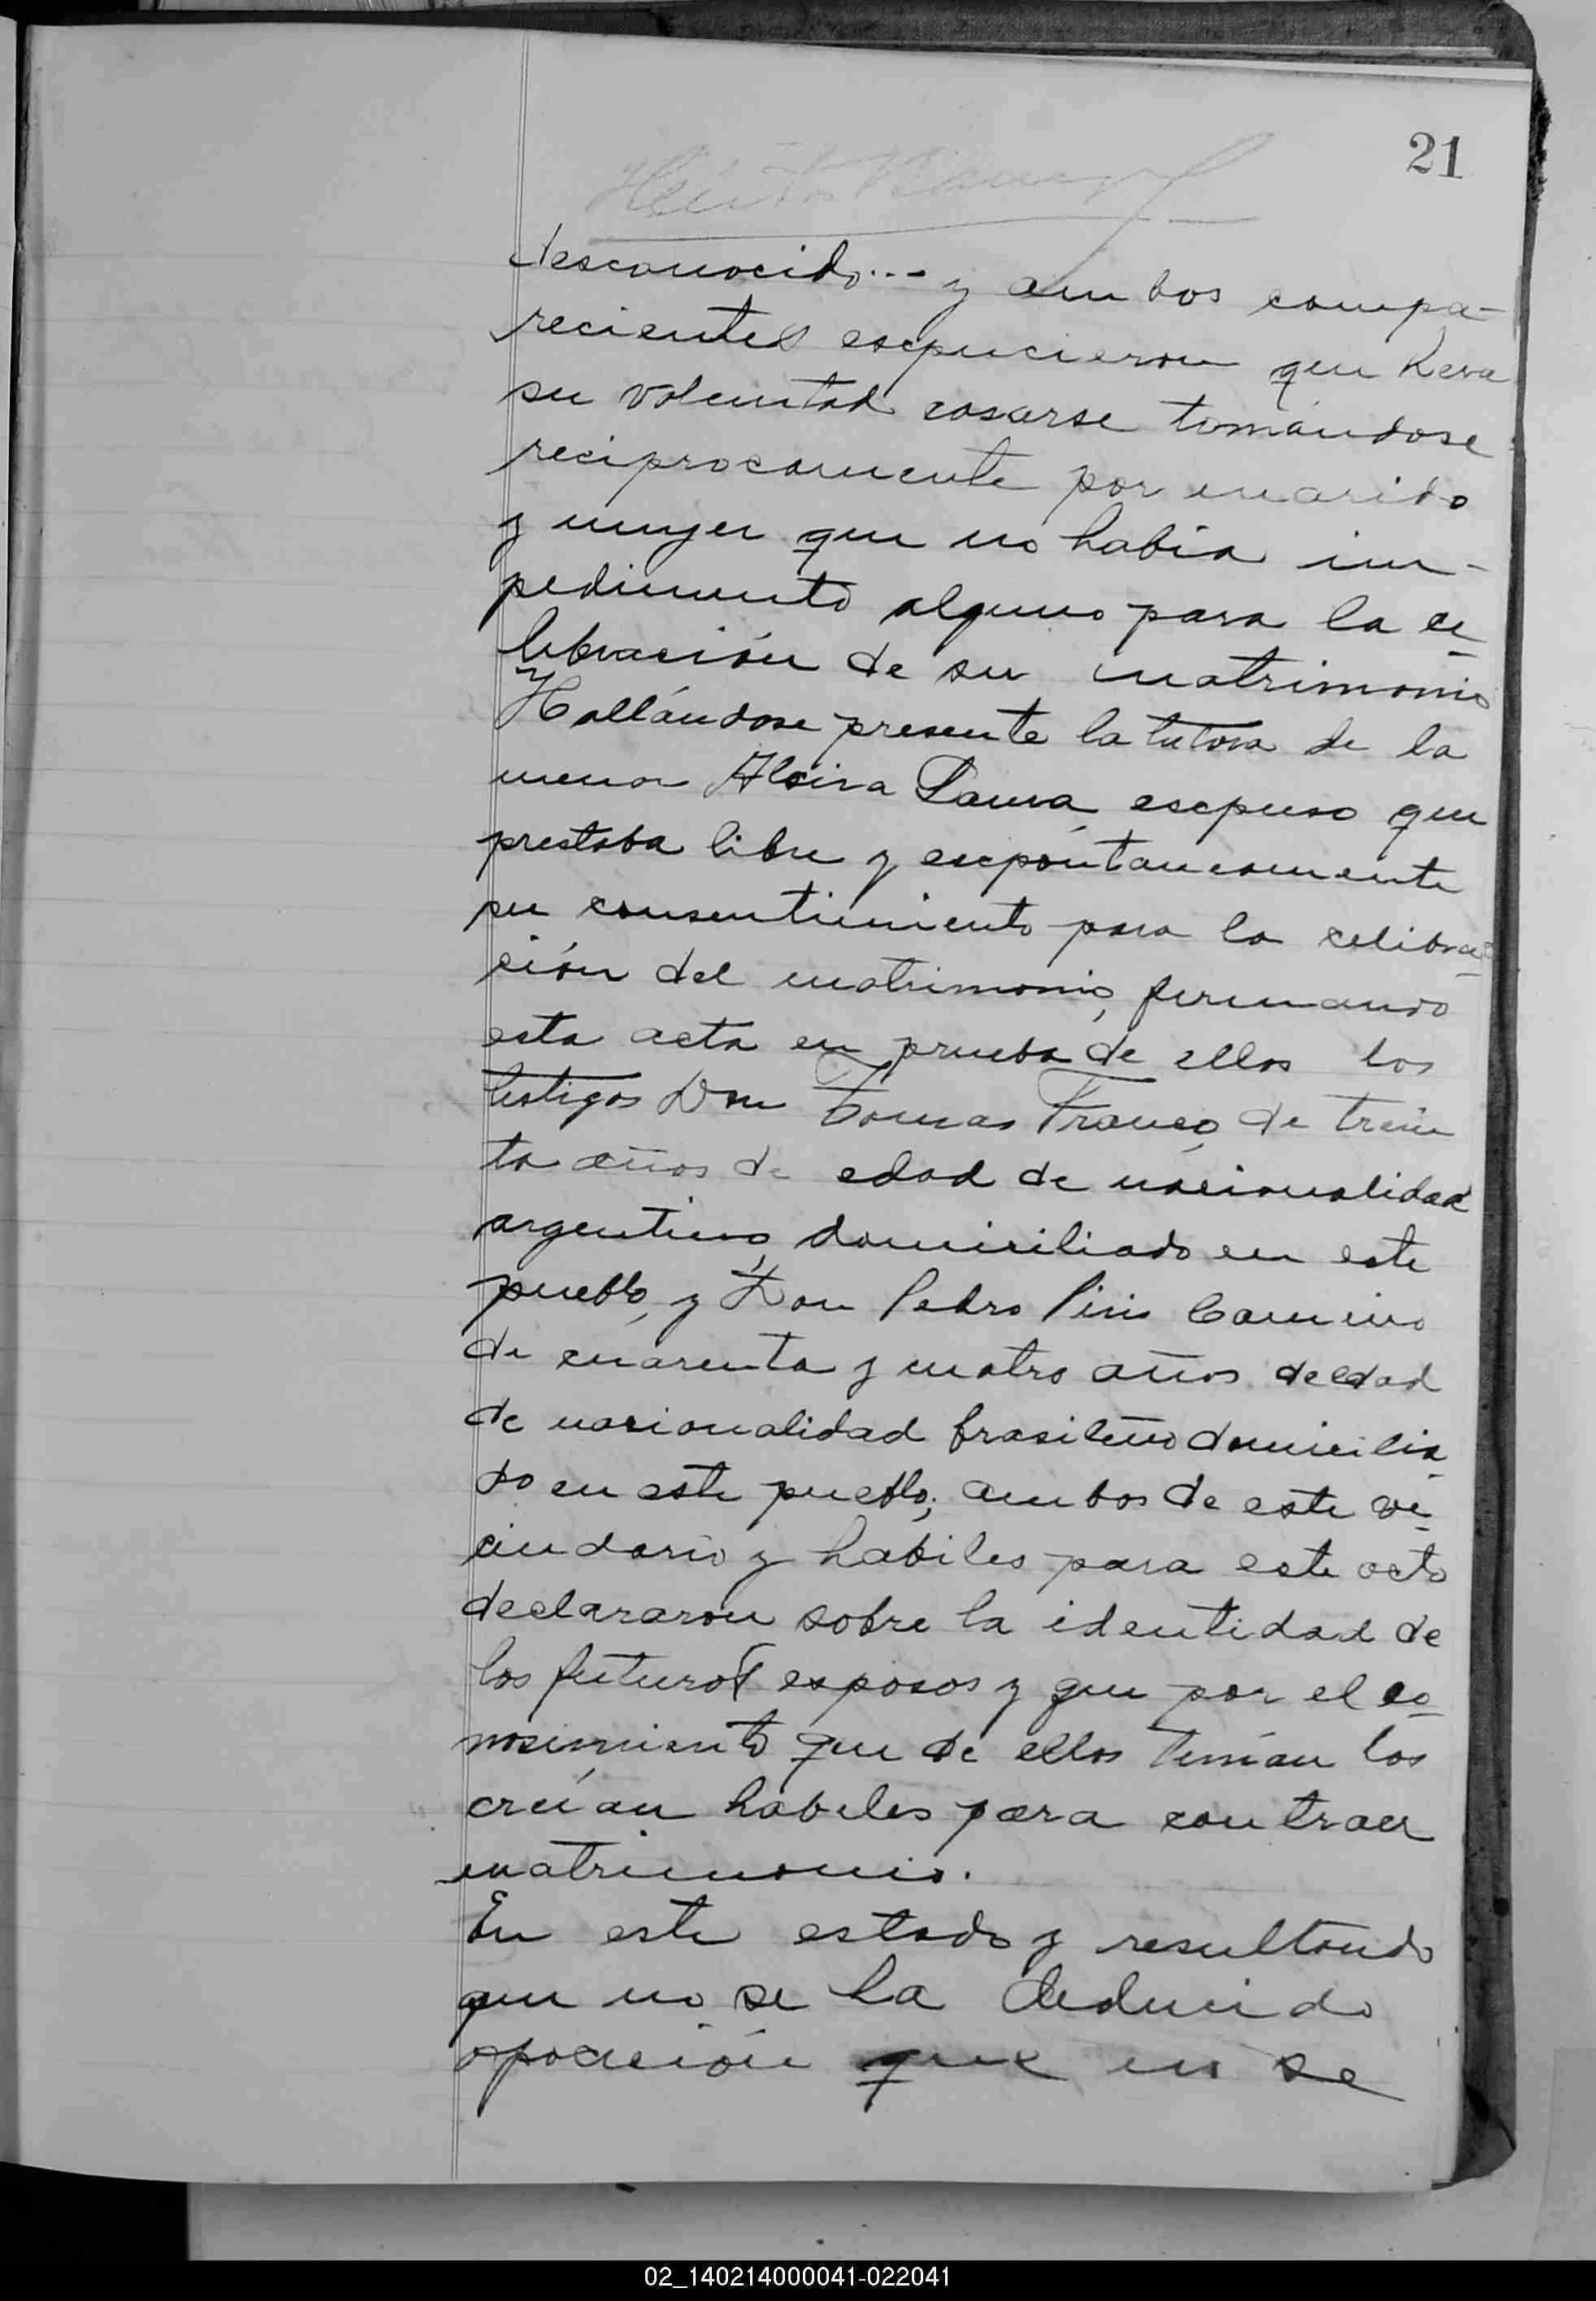 21
desconocido... y ambos compa-
recientes escpucieron que hera
su voluntad casarse tomándose
reciprocamente por marido
y mujer que no había im-
pedimento alguno para la ce-
lebración de su matrimonio
y Hallándose presente la tutora de la
menor Alcira Lama, escpuso que
prestaba libre y escpóntaneamente
su consentimiento para la celibra-
ción del matrimonio, firmando
esta acta en prueba de ellos los
testigos Don Tomas Franco, de trein
ta años de edad de nacionalidad
argentino, domiciliado en este
pueblo, y Don Pedro Piris Camino
de cuarenta y cuatro años de edad
de nacionalidad brasileño domicilia-
do en este pueblo; ambos de este ve-
cindario y habiles para este acto
declararon sobre la identidad de
los futuros esposos y que por el co-
nosimiento que de ellos tenían los
creían habeles para contraer
matrimonio.
En este estado y resultando
que no se ha deducido
oposición que no se
02_140214000041-022041